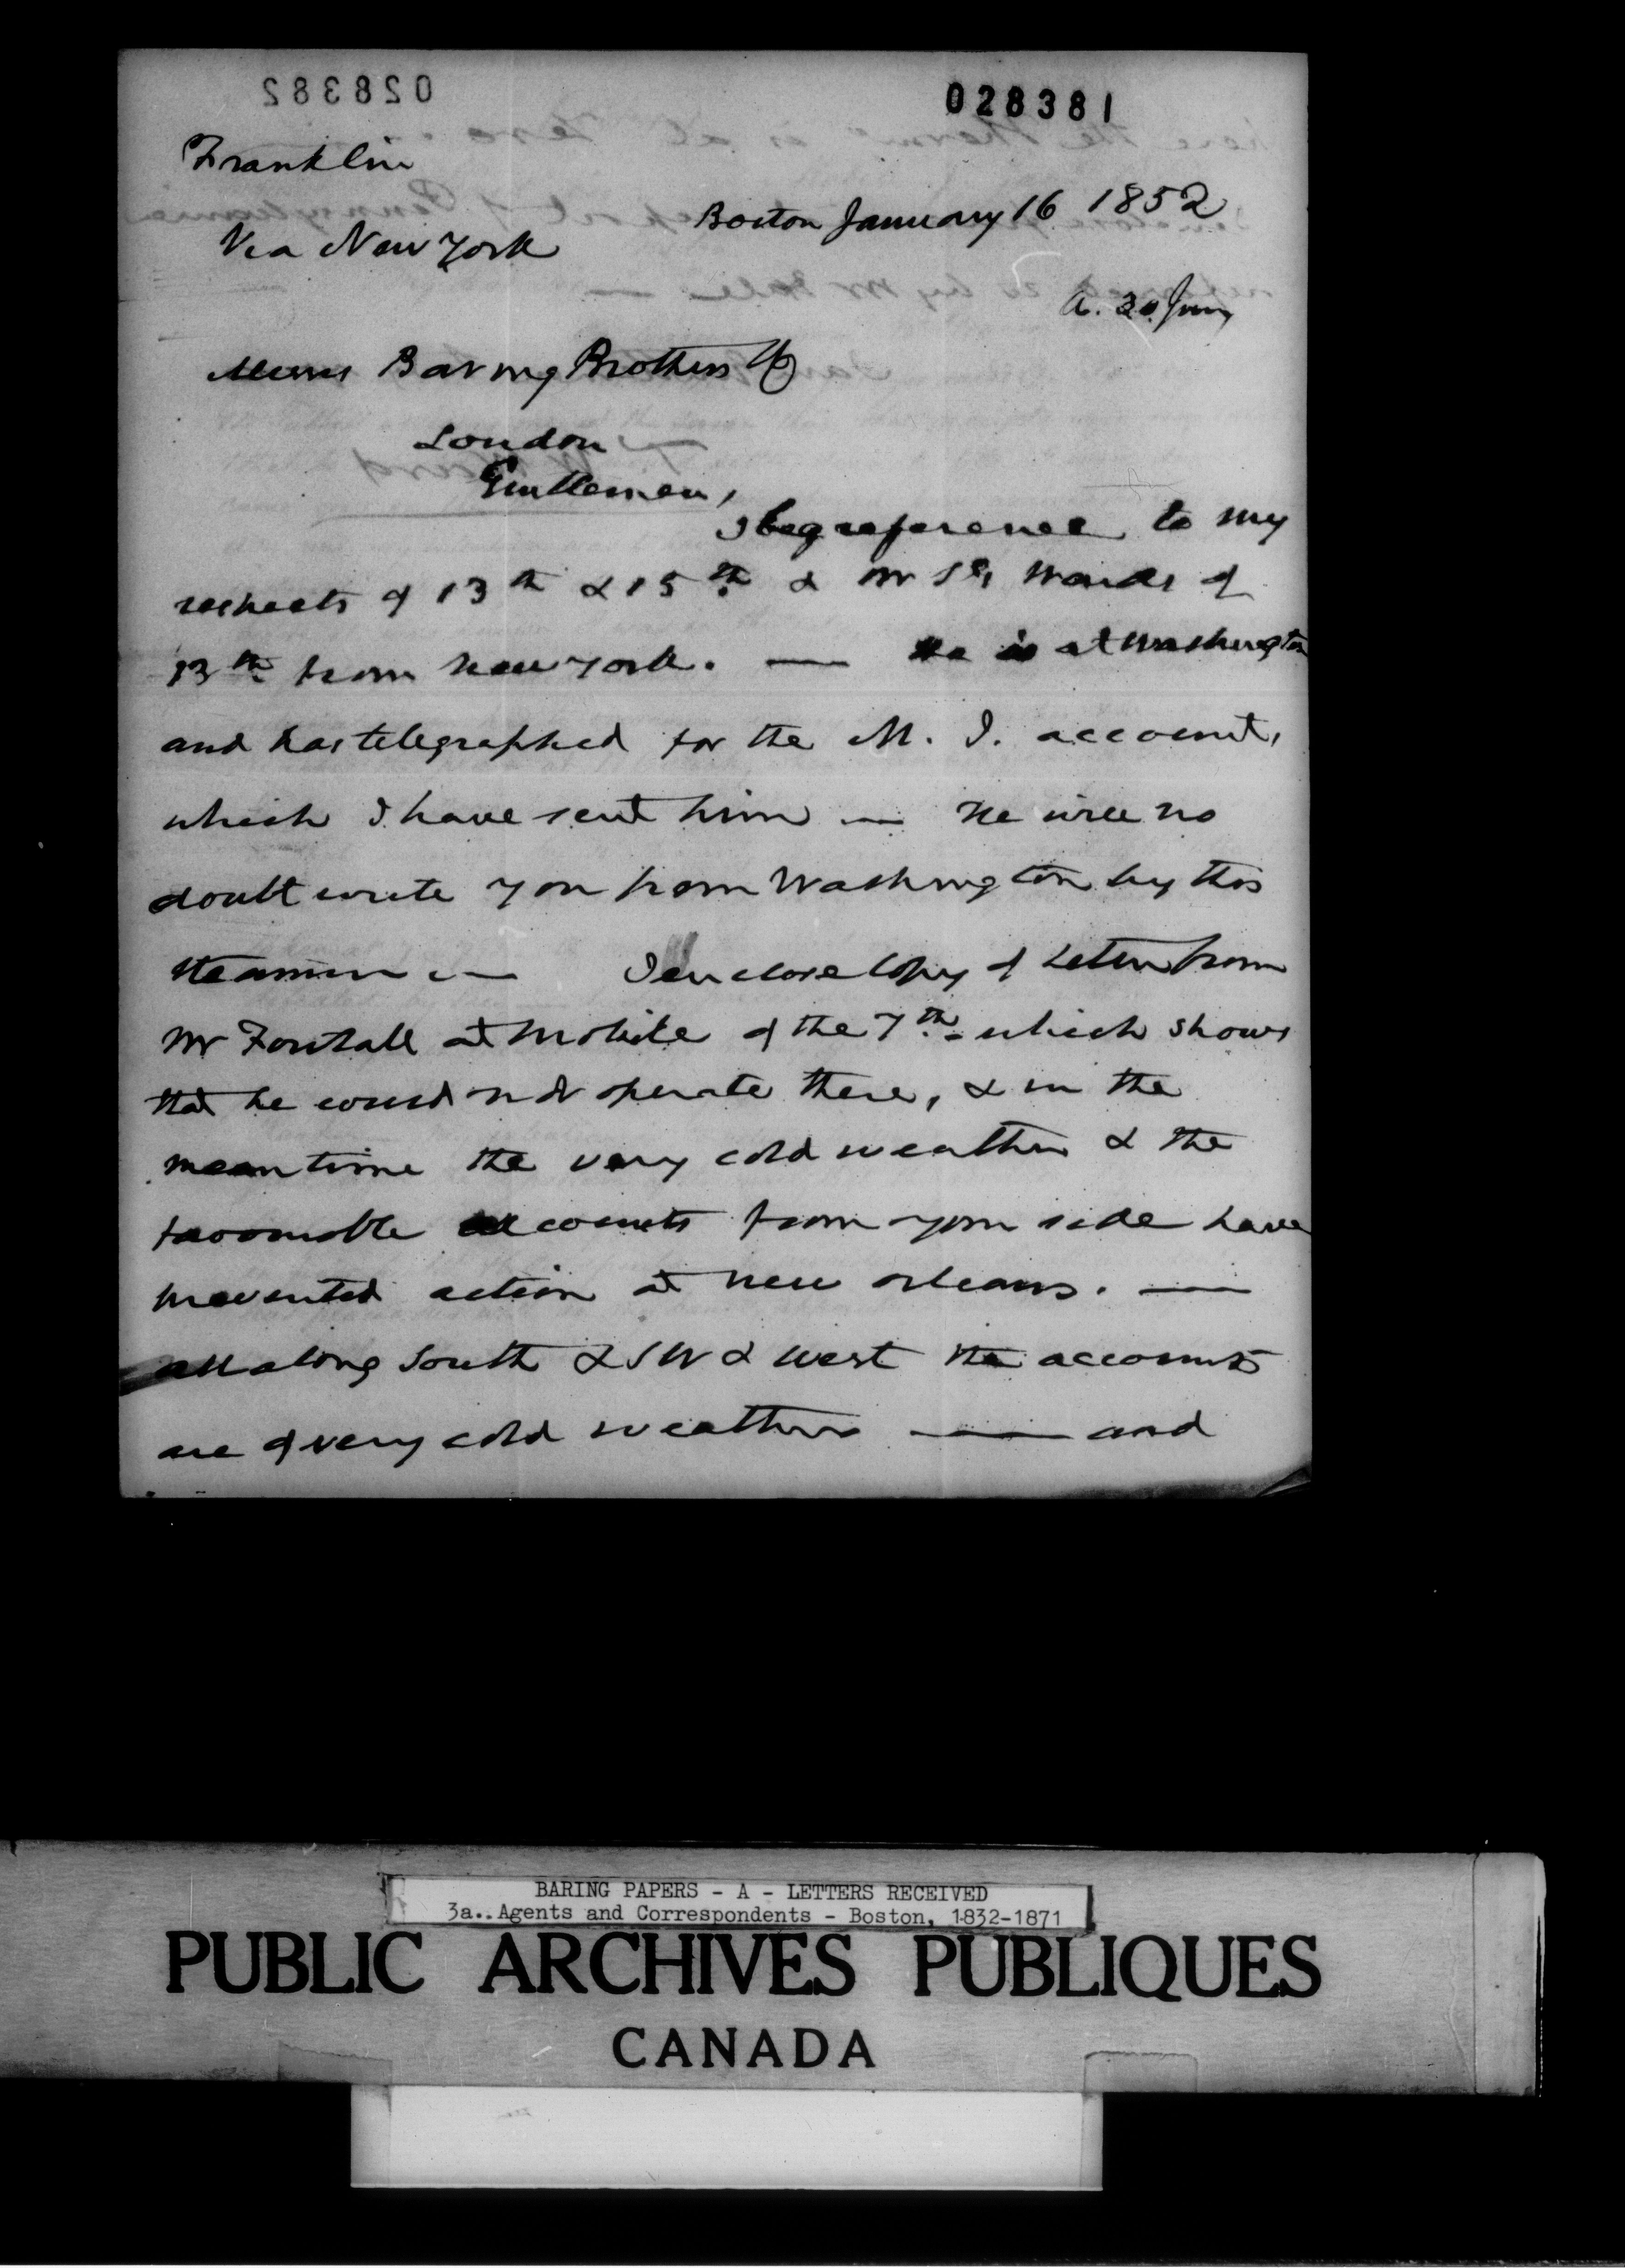 028382
028381
Franklin
Boston January 16 1852
Via New York
A. 30 Jany
Messrs Baring Brothers & Co
London
Gentlemen,
I beg reference to my
respects of 13th & 15th & Mr Wards of
13th from New York. — He is at Washington
and has telegraphed for the M. I. account,
which I have sent him — He will no
doubt write you from Washington by this
steamer — I enclose Copy of Letter from
Mr Forstall at Mobile of the 7th which shows
that he could not operate there, & in the
mean time the very cold weather & the
favourable accounts from your side have
prevented action at New Orleans. —
all along South & SW & West the accounts
are of very cold weather — and
BARING PAPERS - A - LETTERS RECEIVED
3a.. Agents and Correspondents - Boston, 1832-1871
PUBLIC ARCHIVES PUBLIQUES
CANADA